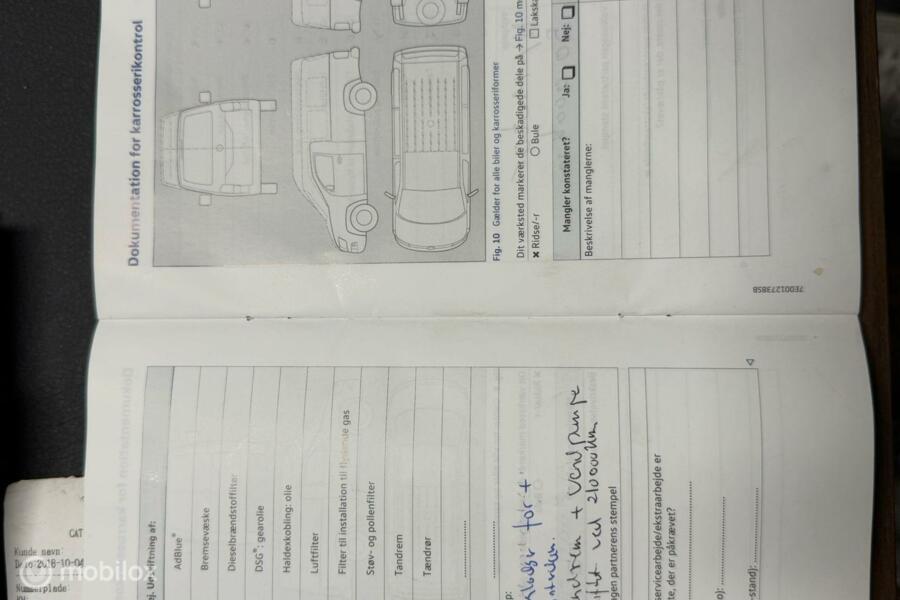 Dokumentation for karrosserikontrol
Fig. 10 Gælder for alle biler og karrosseriformer
Dit værksted markerer de beskadigede dele på → Fig. 10 m
✖ Ridse/-r ○ Bule □ Lakska
Mangler konstateret? Ja: □ Nej: □
Beskrivelse af manglerne:
7E0012738SB
af:
AdBlue®
Bremsevæske
Dieselbrændstoffilter
DSG®: gearolie
Haldexkobling: olie
Luftfilter
Filter til installation til flydende gas
Støv- og pollenfilter
Tandrem
Tændrør
p:
for +
+ vandpumpe
ved 210000 km
gen partnerens stempel
servicearbejde/ekstraarbejde er
te, der er påkrævet?
o):
-stand):
CAT
Kunde navn
Dato:2018-10-04
Nummerplade
mobilox